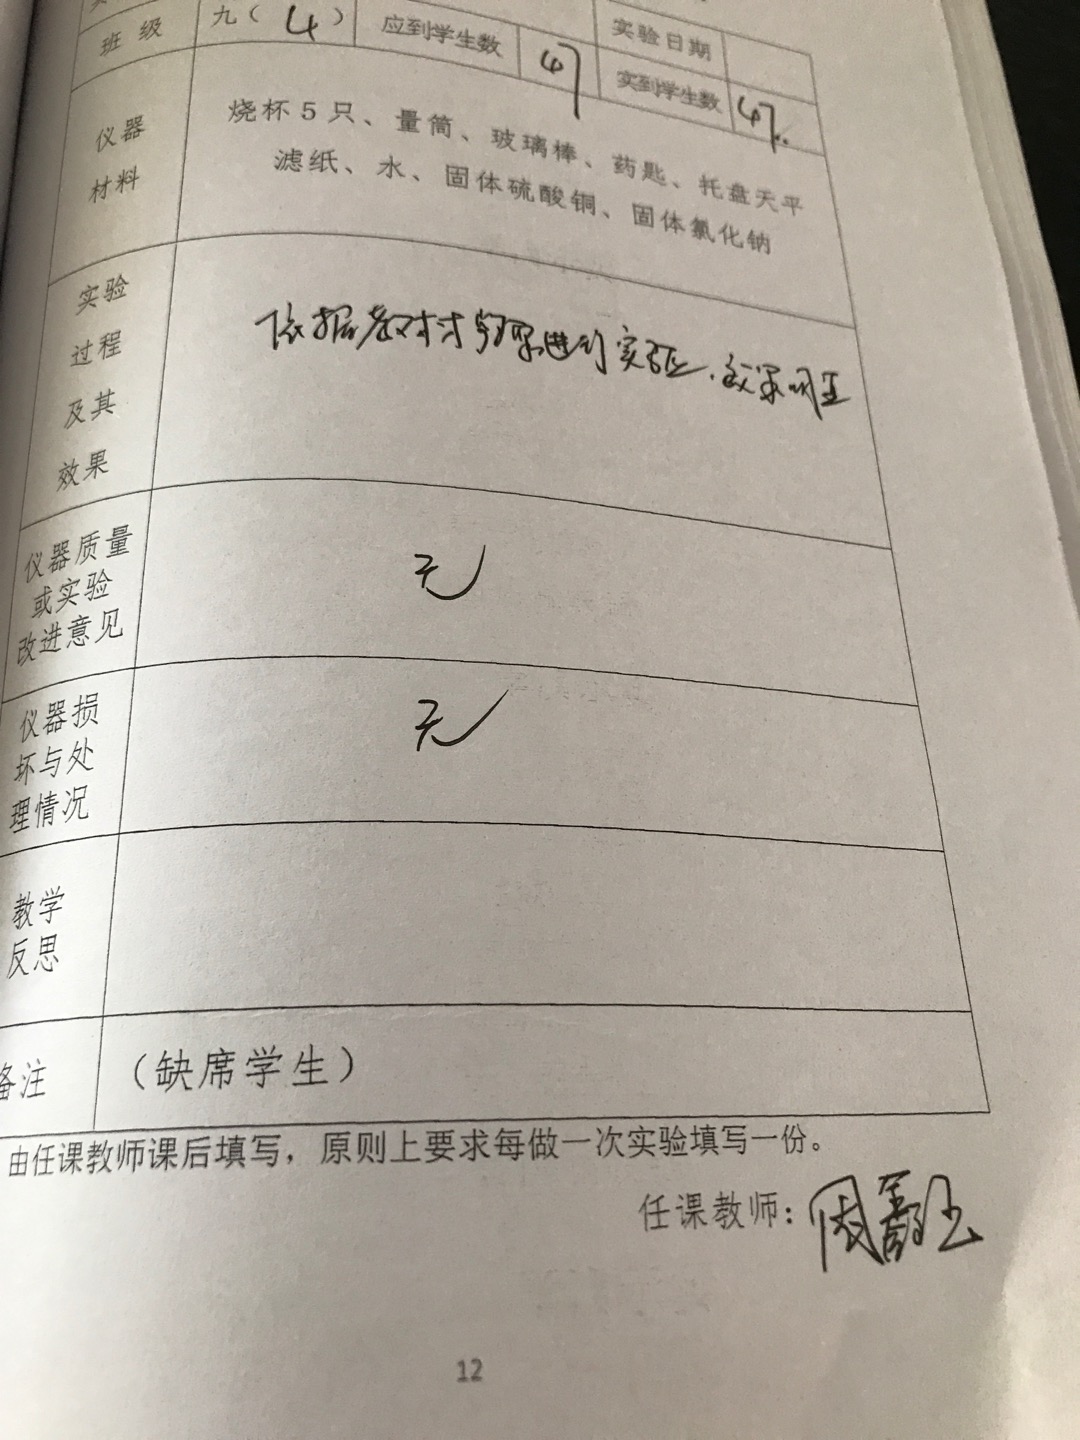 班级 九（4） 应到学生数 47 实验日期
实到学生数 47
仪器
材料
烧杯5只、量筒、玻璃棒、药匙、托盘天平
滤纸、水、固体硫酸铜、固体氯化钠
实验
过程
及其
效果
依据教材步骤进行实验，效果明显
仪器质量
或实验
改进意见
无
仪器损
坏与处
理情况
无
教学
反思
备注 （缺席学生）
由任课教师课后填写，原则上要求每做一次实验填写一份。
任课教师：
12